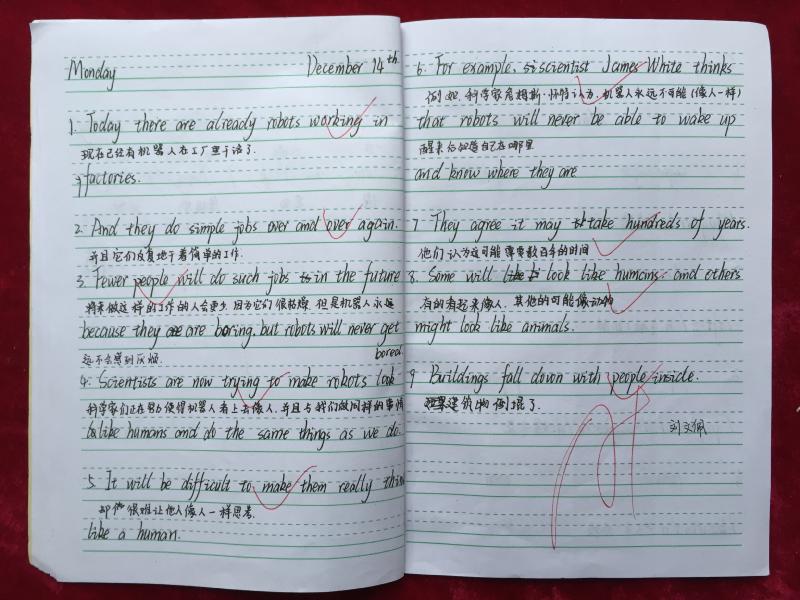 Monday December 14th
1. Today there are already robots working in
现在已经有机器人在工厂里干活了.
factories.
2. And they do simple jobs over and over again.
并且它们反复地干着简单的工作.
3. Fewer people will do such jobs in the future
将来做这样的工作的人会更少 因为它们很枯燥 但是机器人永远
because they are boring, but robots will never get
远不会感到厌烦. bored
4. Scientists are now trying to make robots look
科学家们正在努力使得机器人看上去像人. 并且与我们做同样的事情
like humans and do the same things as we do.
5. It will be difficult to make them really think
却 很难让他人像人一样思考.
like a human.
6. For example, scientist James White thinks
例如, 科学家詹姆斯·怀特认为, 机器人永远不可能(像人一样)
that robots will never be able to wake up
醒来后知道自己在哪里
and know where they are
7 They agree it may take hundreds of years.
他们认为这可能需要数百年的时间
8. Some will look like humans. and others
有的看起来像人. 其他的可能像动物
might look like animals.
9 Buildings fall down with people inside.
建筑物倒塌了.
刘文佩